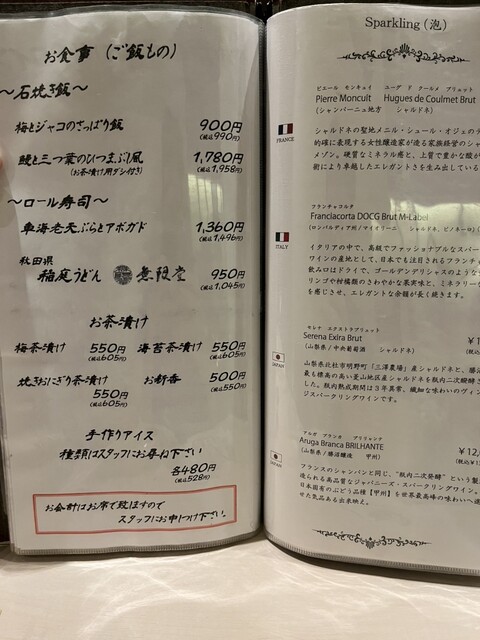 お食事 (ご飯もの)
〜石焼き飯〜
梅とジャコのさっぱり飯 900円
(税込990円)
鰻と三つ葉のひつまぶし風 1,780円
(お茶漬け用ダシ付き) (税込1,958円)
〜ロール寿司〜
車海老天ぷらとアボガド 1,360円
(税込1,496円)
秋田県
稲庭うどん 無限堂 950円
(税込1,045円)
お茶漬け
梅茶漬け 550円 海苔茶漬け 550円
(税込605円) (税込605円)
焼きおにぎり茶漬け お新香 500円
550円 (税込550円)
(税込605円)
手作りアイス
種類はスタッフにお尋ね下さい
各480円
(税込528円)
お会計はお席で致しますので
スタッフにお申しつけ下さい。
Sparkling (泡)
ピエール モンキュイ ユーグ ド クールメ ブリュット
Pierre Moncuit Hugues de Coulmet Brut
(シャンパーニュ地方 シャルドネ)
FRANCE
シャルドネの聖地メニル・シュール・オジェのテ
的確に表現する女性醸造家が造る家族経営のシャ
メゾン。硬質なミネラル感と、上質で豊かな酸が
術により卓越したエレガントさを生み出している
フランチャコルタ
Franciacorta DOCG Brut M-Label
(ロンバルディア州/マイオリーニ シャルドネ、ピノネーロ)
ITALY
イタリアの中で、高級でファッショナブルなスパー
ワインの産地として、日本でも注目されるフランチ
飲み口はドライで、ゴールデンデリシャスのような
リンゴや柑橘類のさわやかな果実味と、ミネラリー
を感じさせ、エレガントな余韻が長く続きます。
セレナ エクストラブリュット
Serena Exira Brut ¥1
(山梨県/中央葡萄酒 シャルドネ)
JAPAN
山梨県北杜市明野町「三澤農場」産シャルドネと、勝沼
最も標高の高い菱山地区産シャルドネを瓶内二次醗酵さ
た。瓶内熟成期間は3年異常、繊細な味わいのヴィン
ジスパークリングワインです。
アルガ ブランカ ブリリャンテ
Aruga Branca BRILHANTE ¥12,
(山梨県/勝沼醸造 甲州) (税込¥13
JAPAN
フランスのシャンパンと同じ、"瓶内二次醗酵"という製
造られる高品質なジャパニーズ・スパークリングワイン。
日本固有のぶどう品種【甲州】を世界最高峰の味わいへ進
せた気品ある出来映え。